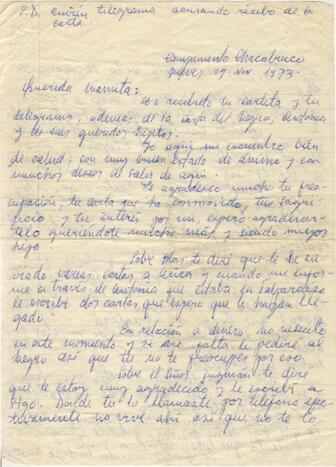 P.D. envíen telegrama acusando recibo de la
carta.
Campamento Chacabuco
Jueves 29. Nov. 1973.
Querida mamita:
He recibido tu cartita y tu
telegrama, además de la carta del Negro, Antonia
y de sus queridos hijitos.
Yo aquí me encuentro bien
de salud, con muy buen estado de ánimo y con
muchos deseos de salir de aquí.
Te agradezco mucho tu preo-
cupación, tu carta que ha conmovido, tu sacri-
ficio y tu interés por mi, espero agradecér-
telo queriéndote mucho más y siendo mejor
hijo.
Sobre Mas te diré que le he en-
viado varias cartas a Arica y cuando me infor-
me a través de Antonia que estaba en Valparaíso
le escribí dos cartas que espero que le hayan lle-
gado.
Con relación a dinero, no necesito
en este momento y si me falta le pediré al
Negro así que tu no te preocupes por eso.
Sobre el Señor Guzmán te diré
que le estoy muy agradecido y le escribí a
Stgo. Donde tu lo llamaste por teléfono efec-
tivamente no vive ahí, así que no te lo